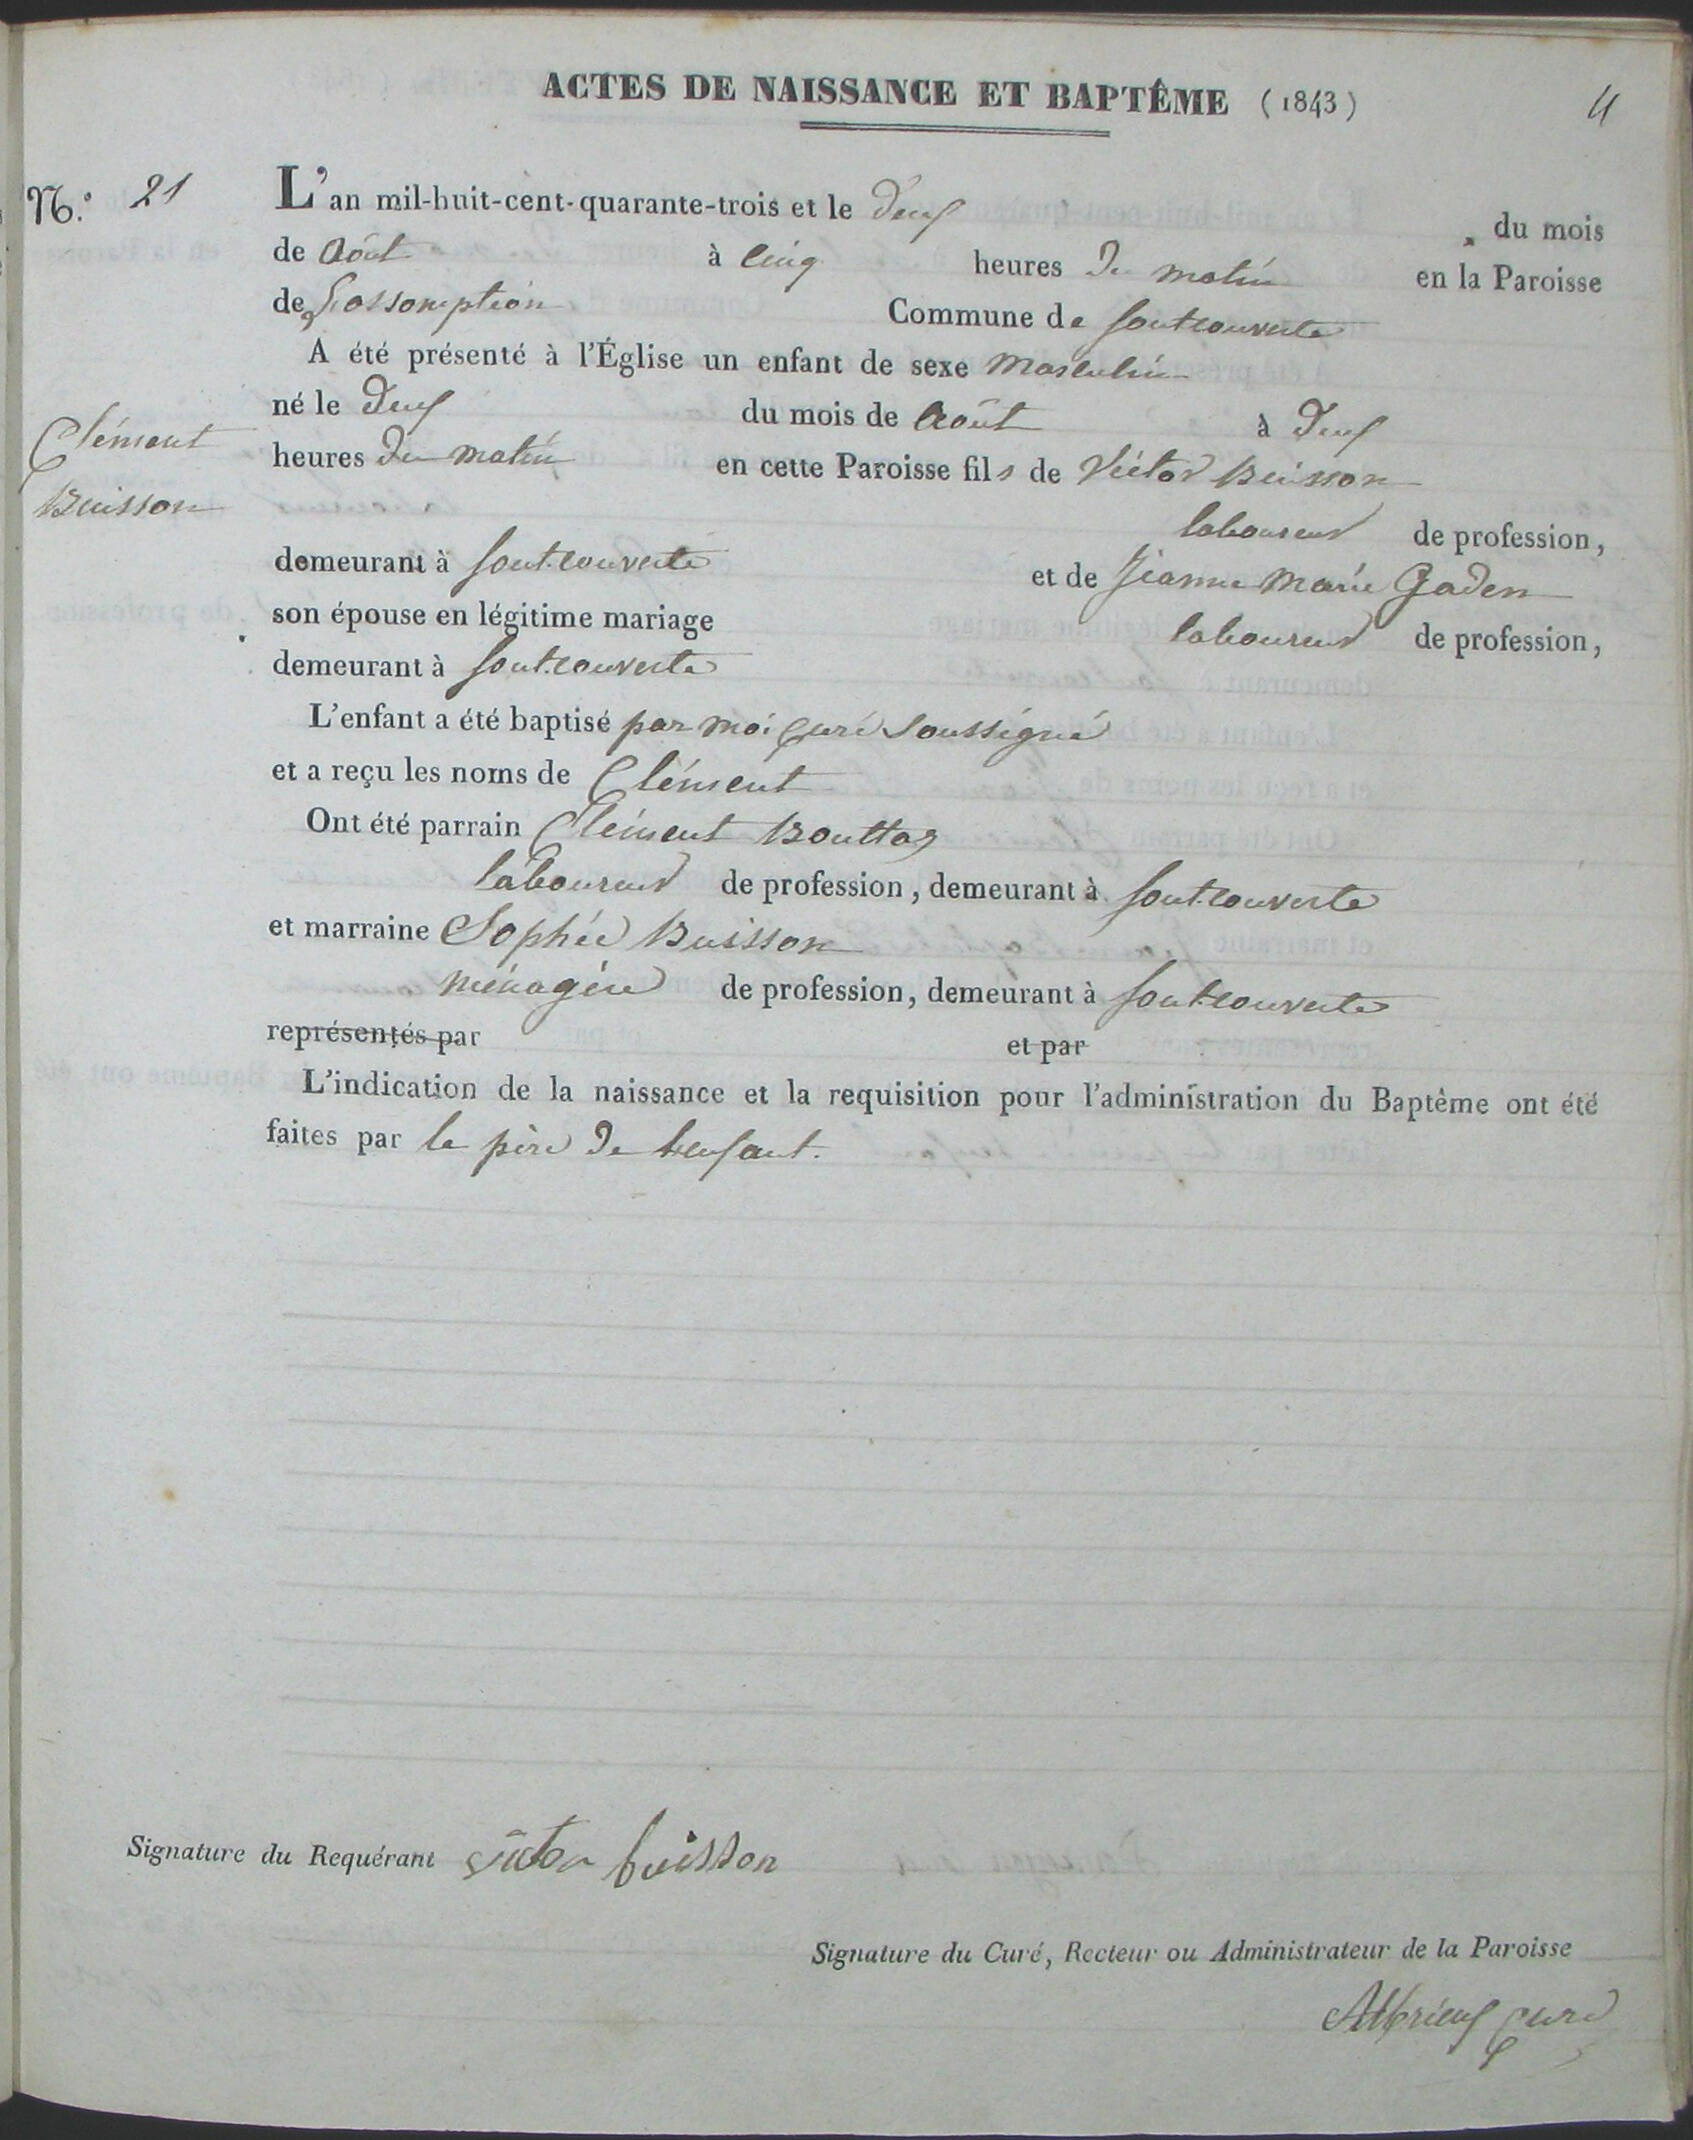 ACTES DE NAISSANCE ET BAPTÊME (1843)
N.° 21
L'an mil-huit-cent-quarante-trois et le deux du mois
de Août à cinq heures du matin en la Paroisse
de L'assomption Commune de fontcouverte
A été présenté à l'Église un enfant de sexe masculin
né le deux du mois de Août à deux
Clément
Buisson
heures du matin en cette Paroisse fils de Victor Buisson
laboureur de profession,
demeurant à fontcouverte et de Jeanne Marie Gaden
son épouse en légitime mariage laboureur de profession,
demeurant à fontcouverte
L'enfant a été baptisé par moi curé soussigné
et a reçu les noms de Clément
Ont été parrain Clément Bouttaz
laboureur de profession, demeurant à fontcouverte
et marraine Sophie Buisson
ménagère de profession, demeurant à fontcouverte
représentés par et par
L'indication de la naissance et la requisition pour l'administration du Baptême ont été
faites par le père de l'enfant.
Signature du Requérant victor buisson
Signature du Curé, Recteur ou Administrateur de la Paroisse
Albrieux curé